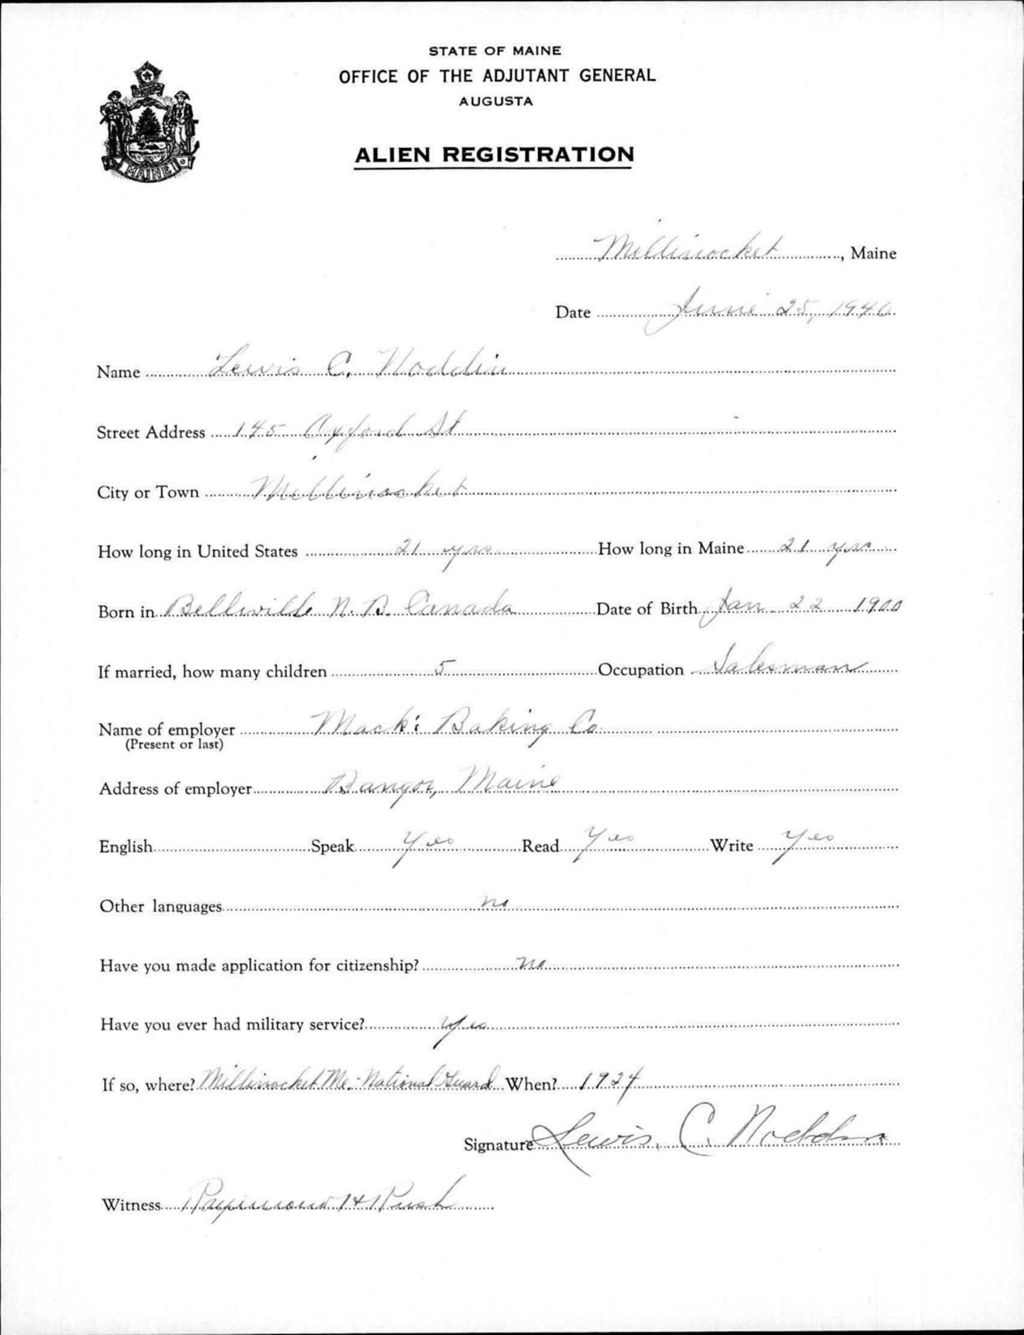 STATE OF MAINE
OFFICE OF THE ADJUTANT GENERAL
AUGUSTA
ALIEN REGISTRATION
MAINE
Millinocket, Maine
Date June 25, 1940
Name Lewis C. Noddin
Street Address 145 Oxford St
City or Town Millinocket
How long in United States 21 yrs How long in Maine 21 yrs
Born in Belleville N.B. Canada Date of Birth Jan. 22 1900
If married, how many children 5 Occupation Salesman
Name of employer Mack's Baking Co
(Present or last)
Address of employer Bangor, Maine
English Speak Yes Read Yes Write Yes
Other languages no
Have you made application for citizenship? no
Have you ever had military service? yes
If so, where? Millinocket Me. National Guard When? 1924
Signature Lewis C. Noddin
Witness Raymond H Rush